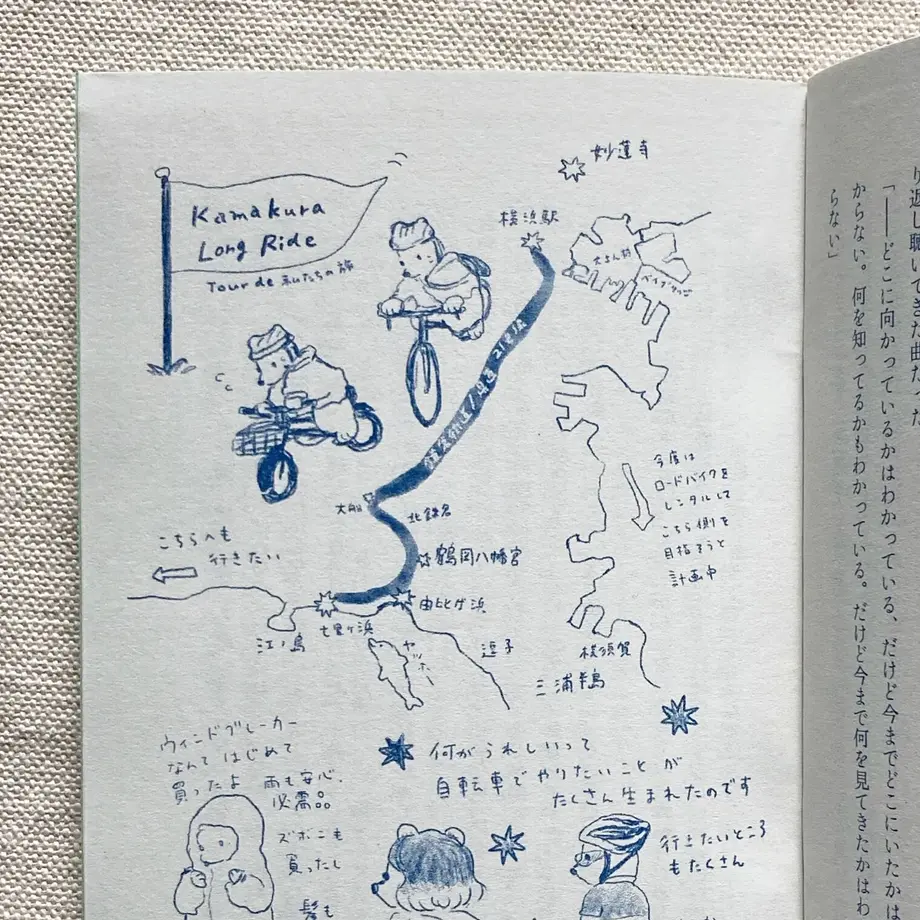 Kamakura
Long Ride
Tour de 私たちの旅
妙蓮寺
横浜駅
大さん橋
ベイブリッジ
大船
北鎌倉
鶴岡八幡宮
由比ヶ浜
七里ヶ浜
江ノ島
逗子
三浦半島
横須賀
こちらへも
行きたい
ヤッホー
今度は
ロードバイクを
レンタルして
こちら側を
目指そうと
計画中
何がうれしいって
自転車でやりたいことが
たくさん生まれたのです
ウィンドブレーカー
なんてはじめて
買ったよ
雨も安心、
必需品
ズボンも
買ったし
髪も
行きたいところ
もたくさん
り返し聴いてきた曲だった
「――どこに向かっているかはわかっている、だけど今までどこにいたかは
からない。何を知ってるかもわかっている。だけど今まで何を見てきたかはわ
らない」